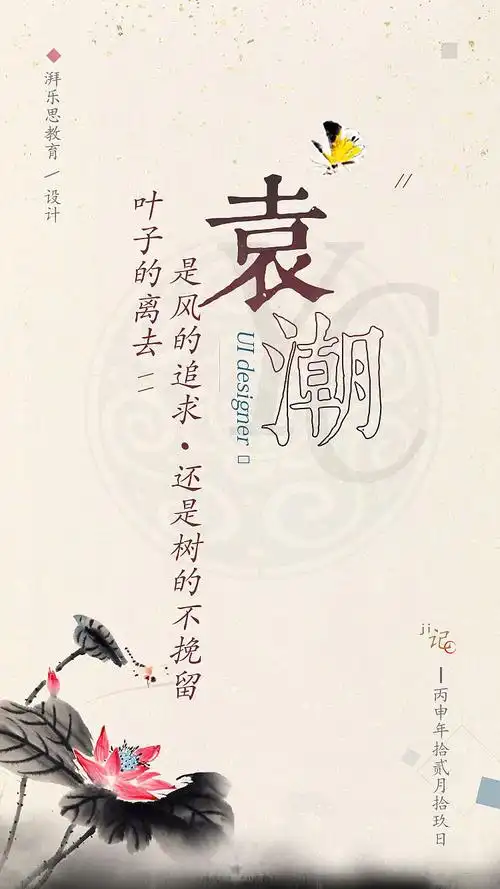 湃乐思教育/设计
袁潮
UI designer
叶子的离去
是风的追求·还是树的不挽留
YC
ji记
丙申年拾贰月拾玖日